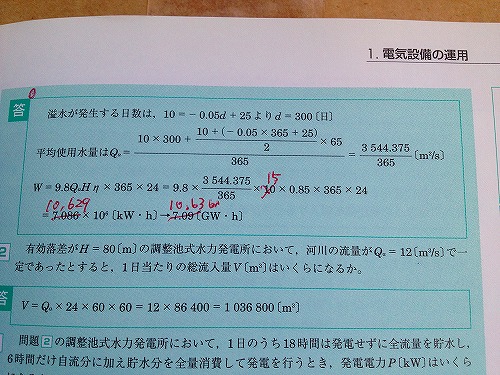 1. 電気設備の運用
答
溢水が発生する日数は，10＝－0.05d＋25よりd＝300〔日〕
平均使用水量はQo＝(10×300＋(10＋(－0.05×365＋25))/2×65)/365＝3 544.375/365〔m³/s〕
15
W＝9.8QoHη×365×24＝9.8×3 544.375/365×10×0.85×365×24
10.629 10.63
＝7.086×10⁶〔kW・h〕→7.09〔GW・h〕
2 有効落差がH＝80〔m〕の調整池式水力発電所において，河川の流量がQo＝12〔m³/s〕で一
定であったとすると，1日当たりの総流入量V〔m³〕はいくらになるか。
答
V＝Qo×24×60×60＝12×86 400＝1 036 800〔m³〕
問題2の調整池式水力発電所において，1日のうち18時間は発電せずに全流量を貯水し，
6時間だけ自流分に加え貯水分を全量消費して発電を行うとき，発電電力P〔kW〕はいくら